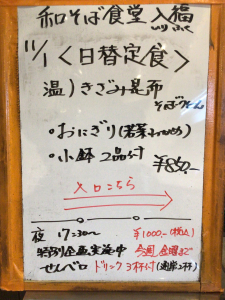 和そば食堂 入福
いり ふく
11/1 〈日替定食〉
温) きざみ昆布
そば・うどん
・おにぎり (若菜
・小鉢 2品付 ¥850-
入口こちら
夜 17:30〜 ¥1000-(税込)
特別企画実施中 今週 金曜まで
せんべロ ドリンク3杯付